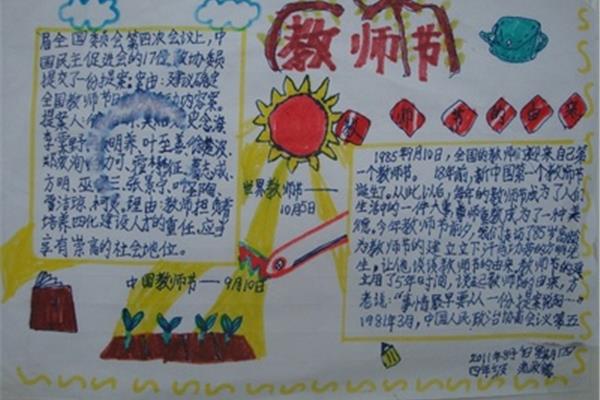 教师节
教师节的由来
届全国委员会第四次会议上,中
国民主促进会的17位政协委员
提交了一份提案。案由:建议确定
全国教师节日
提案人
李霁野 明养 叶至善
方明,巫 三.张景宁.
董洁琼.柯灵.理由:教师担负着
培养四化建设人才的重任,应当
享有崇高的社会地位。
世界教师节——
10月5日
中国教师节——9月10日
1985年9月10日,全国的教师们迎来自己第
一个教师节。 18年前,新中国第一个教师节
诞生了。从此以后,每年的教师节成为了人们
生活中的一件大事,尊师重教成为了一种美
德。今年教师节前夕,我们走访了85岁高龄
为教师节的建立立下汗马功劳的方明先
生,让他谈谈教师节的由来。教师节的建
立用了5年时间,谈起教师节的由来,方
老说:“事情要从一份提案说起…
1981年3月,中国人民政治协商会议第五
2011年
四年级